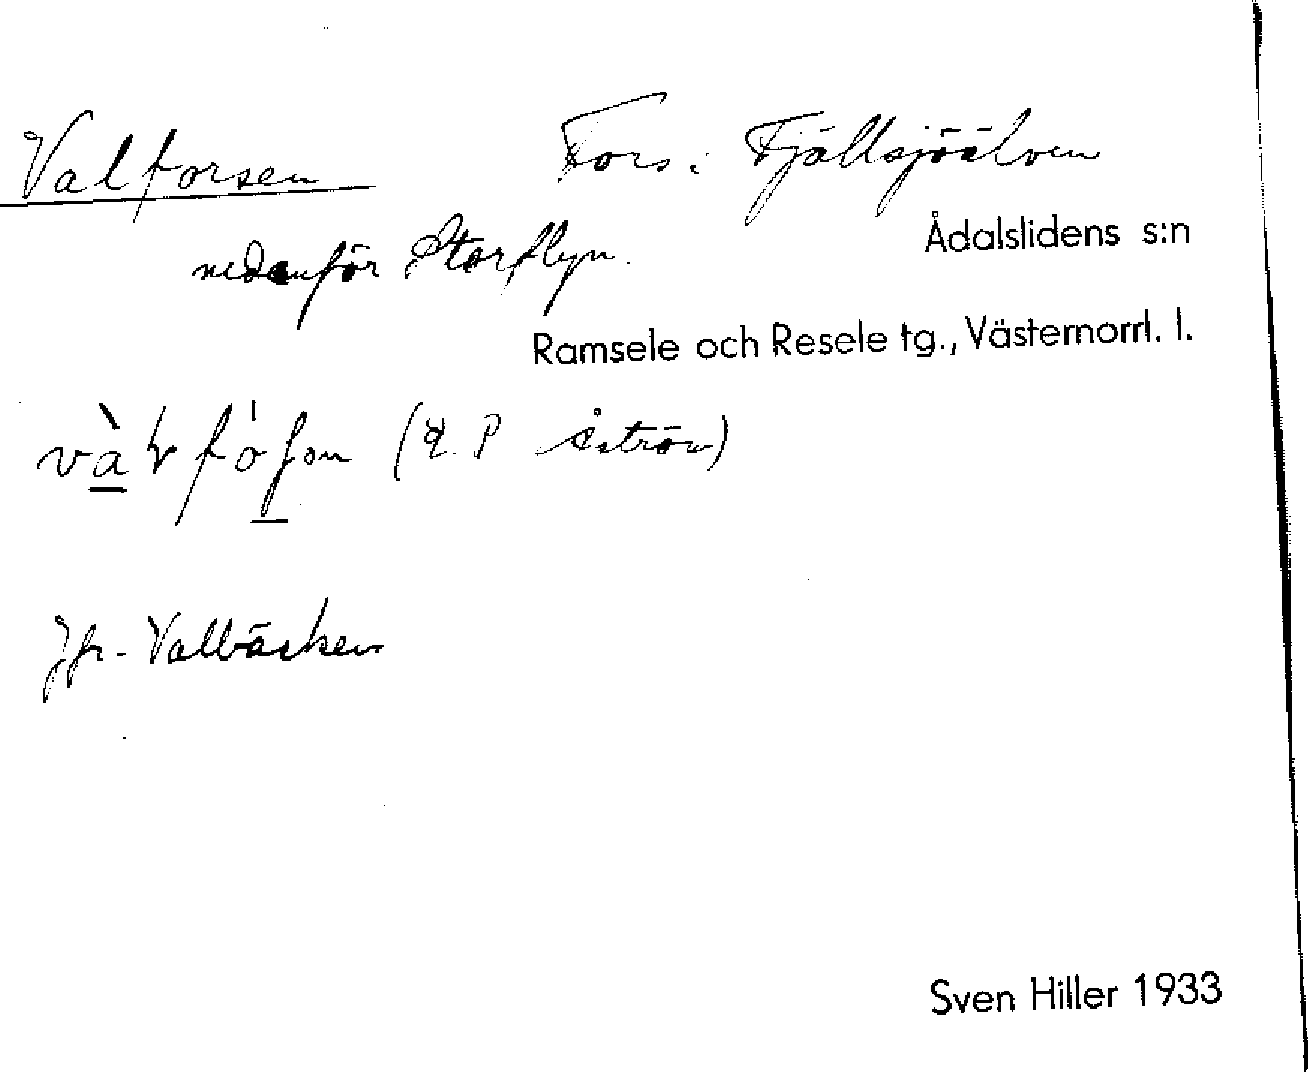 Valforsen Fors i Fjällsjöälven
nedanför Storflyn.
Ådalslidens s:n
Ramsele och Resele tg., Västernorrl. l.
(E. P Åström)
Jfr. Vallbäcken
Sven Hiller 1933